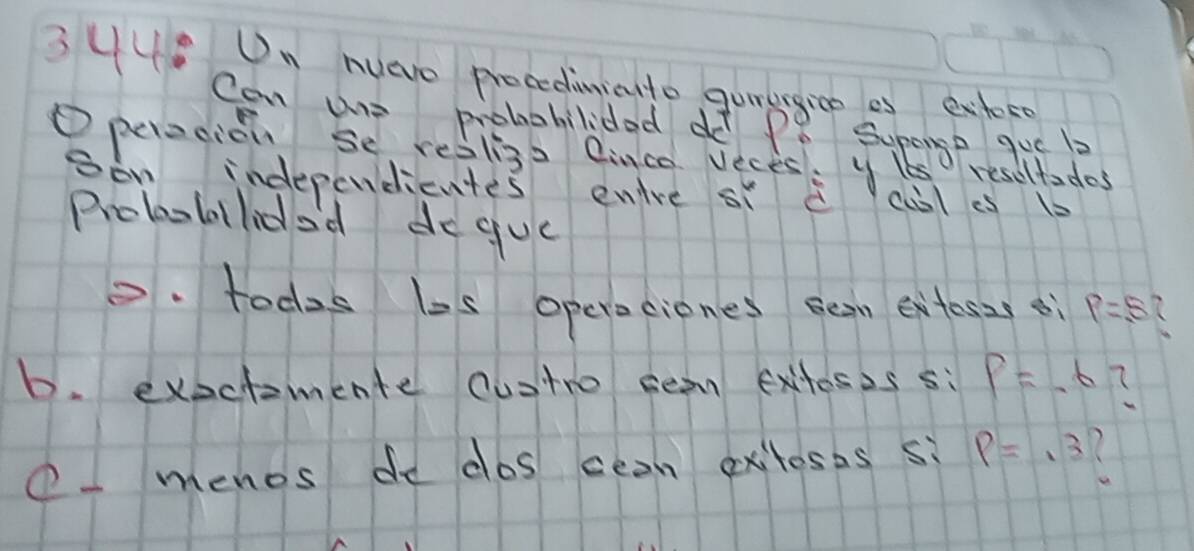 344: Un nuevo procedimiento quirurgico es exitoso
Con una probabilidad de P. Suponga que la
Operación se realiza Cinco veces. y los resultados
Son independientes entre sí ¿ cuál es la
Probabilidad de que
a. todas las operaciones sean exitosas si P=.8?
b. exactamente cuatro sean exitosas si P=.6?
c- menos de dos sean exitosas si P=.3?